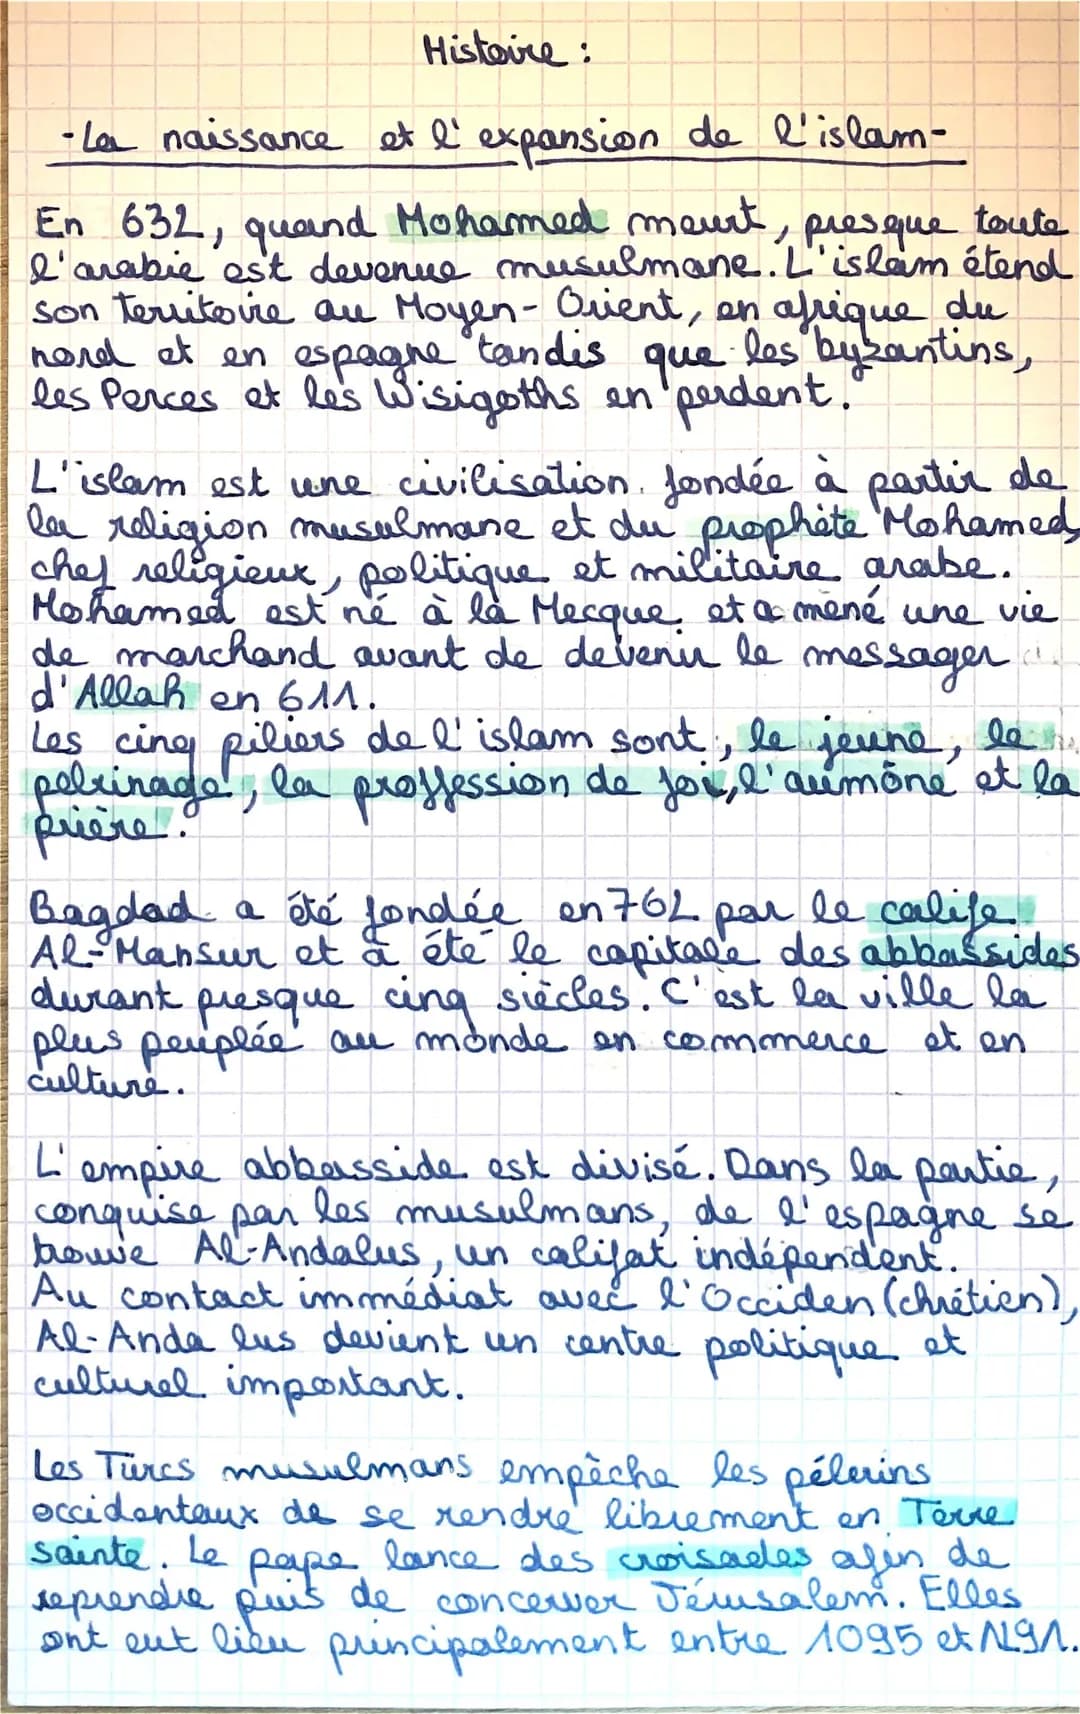 Histoire :
-La naissance et l'expansion de l'islam-
En 632, quand Mohamed meurt, presque toute
l'arabie est devenue musulmane. L'islam étend
son territoire au Moyen-Orient, en afrique du
nord et en espagne tandis que les byzantins,
les Perces et les Wisigoths en perdent.
L'islam est une civilisation fondée à partir de
la religion musulmane et du prophète Mohamed,
chef religieux, politique et militaire arabe.
Mohamed est né à la Mecque et a mené une vie
de marchand avant de devenir le messager
d'Allah en 611.
Les cinq piliers de l'islam sont, le jeune, le
pelrinage, la proffession de foi, l'aumône et la
prière.
Bagdad a été fondée en 762 par le calife
Al-Mansur et à été le capitale des abbassides
durant presque cinq siècles. C'est la ville la
plus peuplée au monde en commerce et en
culture.
L'empire abbasside est divisé. Dans la partie,
conquise par les musulmans, de l'espagne se
trouve Al-Andalus, un califat indépendent.
Au contact immédiat avec l'Occiden (chrétien),
Al-Anda lus devient un centre politique et
culturel important.
Les Turcs musulmans empèche les pélerins
occidentaux de se rendre librement en Terre
sainte. Le pape lance des croisades afin de
reprendre puis de concerver Jérusalem. Elles
ont eut lieu principalement entre 1095 et 1291.